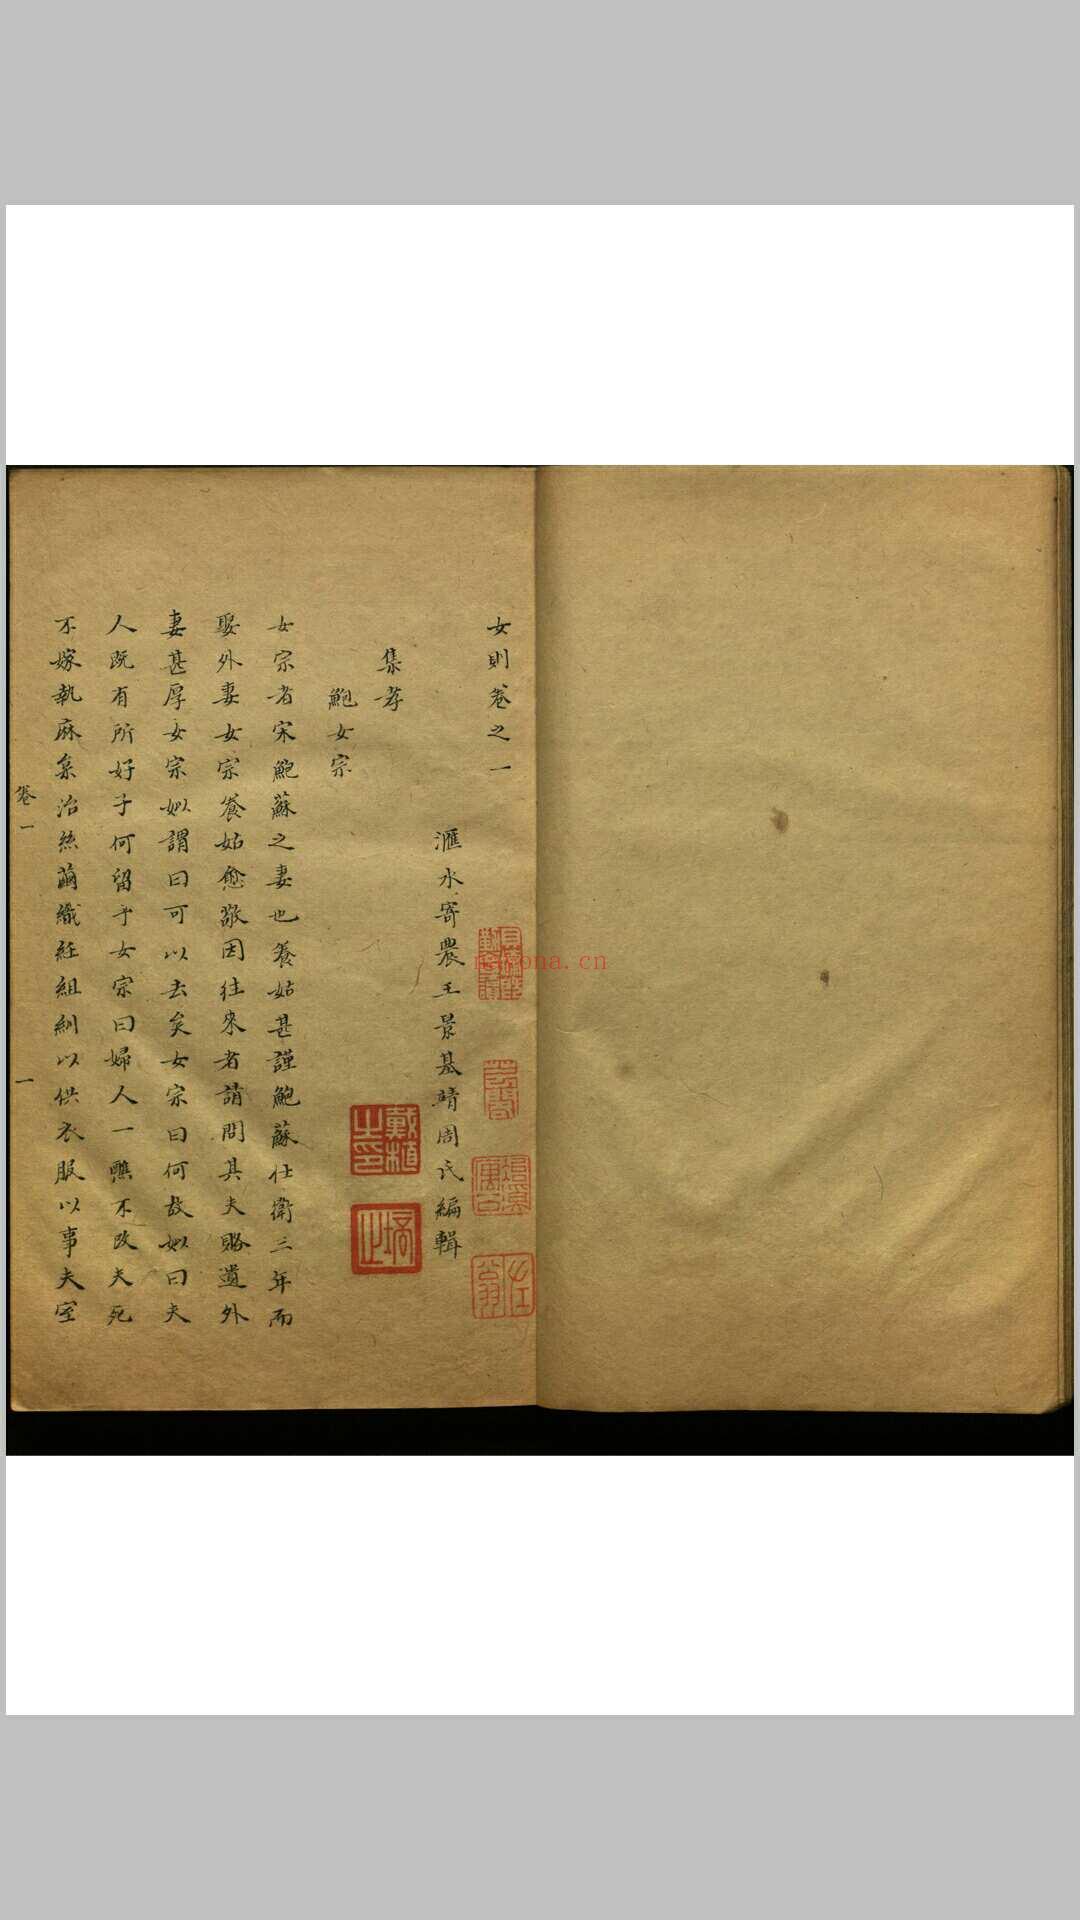 女則卷之一
滙水寄農王景基靖周氏編輯
集孝
鮑女宗
女宗者宋鮑蘇之妻也養姑甚謹鮑蘇仕衛三年而
娶外妻女宗養姑愈敬因往來者請問其夫賂遺外
妻甚厚女宗姒謂曰可以去矣女宗曰何故姒曰夫
人既有所好子何留乎女宗曰婦人一醮不改夫死
不嫁執麻枲治絲繭織紝組紃以供衣服以事夫室
卷一
一
戴植之印